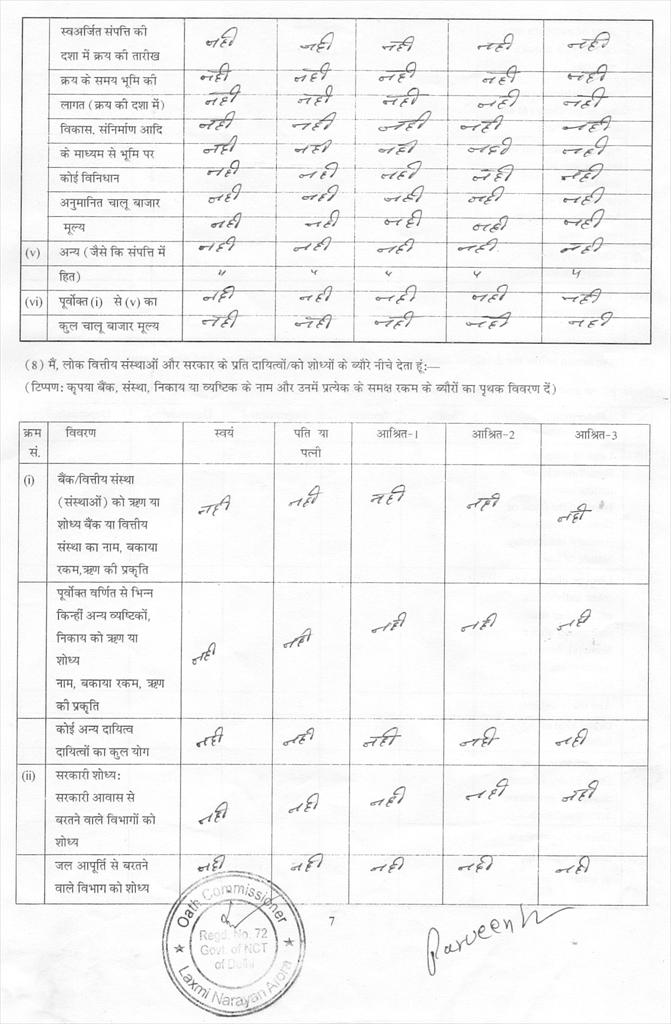 स्वअर्जित संपत्ति की
दशा में क्रय की तारीख नही नही नही नही नही
क्रय के समय भूमि की नही नही नही नही नही
लागत (क्रय की दशा में) नही नही नही नही नही
विकास, संनिर्माण आदि नही नही नही नही नही
के माध्यम से भूमि पर नही नही नही नही नही
कोई विनिधान नही नही नही नही नही
अनुमानित चालू बाजार नही नही नही नही नही
मूल्य नही नही नही नही नही
(v) अन्य (जैसे कि संपत्ति में नही नही नही नही नही
हित) " " " " "
(vi) पूर्वोक्त (i) से (v) का नही नही नही नही नही
कुल चालू बाजार मूल्य नही नही नही नही नही
(8) मैं, लोक वित्तीय संस्थाओं और सरकार के प्रति दायित्वों/को शोध्यों के ब्यौरे नीचे देता हूं:—
(टिप्पण: कृपया बैंक, संस्था, निकाय या व्यष्टिक के नाम और उनमें प्रत्येक के समक्ष रकम के ब्यौरों का पृथक विवरण दें)
क्रम विवरण स्वयं पति या आश्रित-1 आश्रित-2 आश्रित-3
सं. पत्नी
(i) बैंक/वित्तीय संस्था
(संस्थाओं) को ऋण या नही नही नही नही नही
शोध्य बैंक या वित्तीय
संस्था का नाम, बकाया
रकम,ऋण की प्रकृति
पूर्वोक्त वर्णित से भिन्न
किन्हीं अन्य व्यष्टिकों,
निकाय को ऋण या नही नही नही नही नही
शोध्य
नाम, बकाया रकम, ऋण
की प्रकृति
कोई अन्य दायित्व
दायित्वों का कुल योग नही नही नही नही नही
(ii) सरकारी शोध्य:
सरकारी आवास से
बरतने वाले विभागों को नही नही नही नही नही
शोध्य
जल आपूर्ति से बरतने नही नही नही नही नही
वाले विभाग को शोध्य
7
Oath Commissioner
Regd. No. 72
Govt. of NCT
of Delhi
Laxmi Narayan Arora